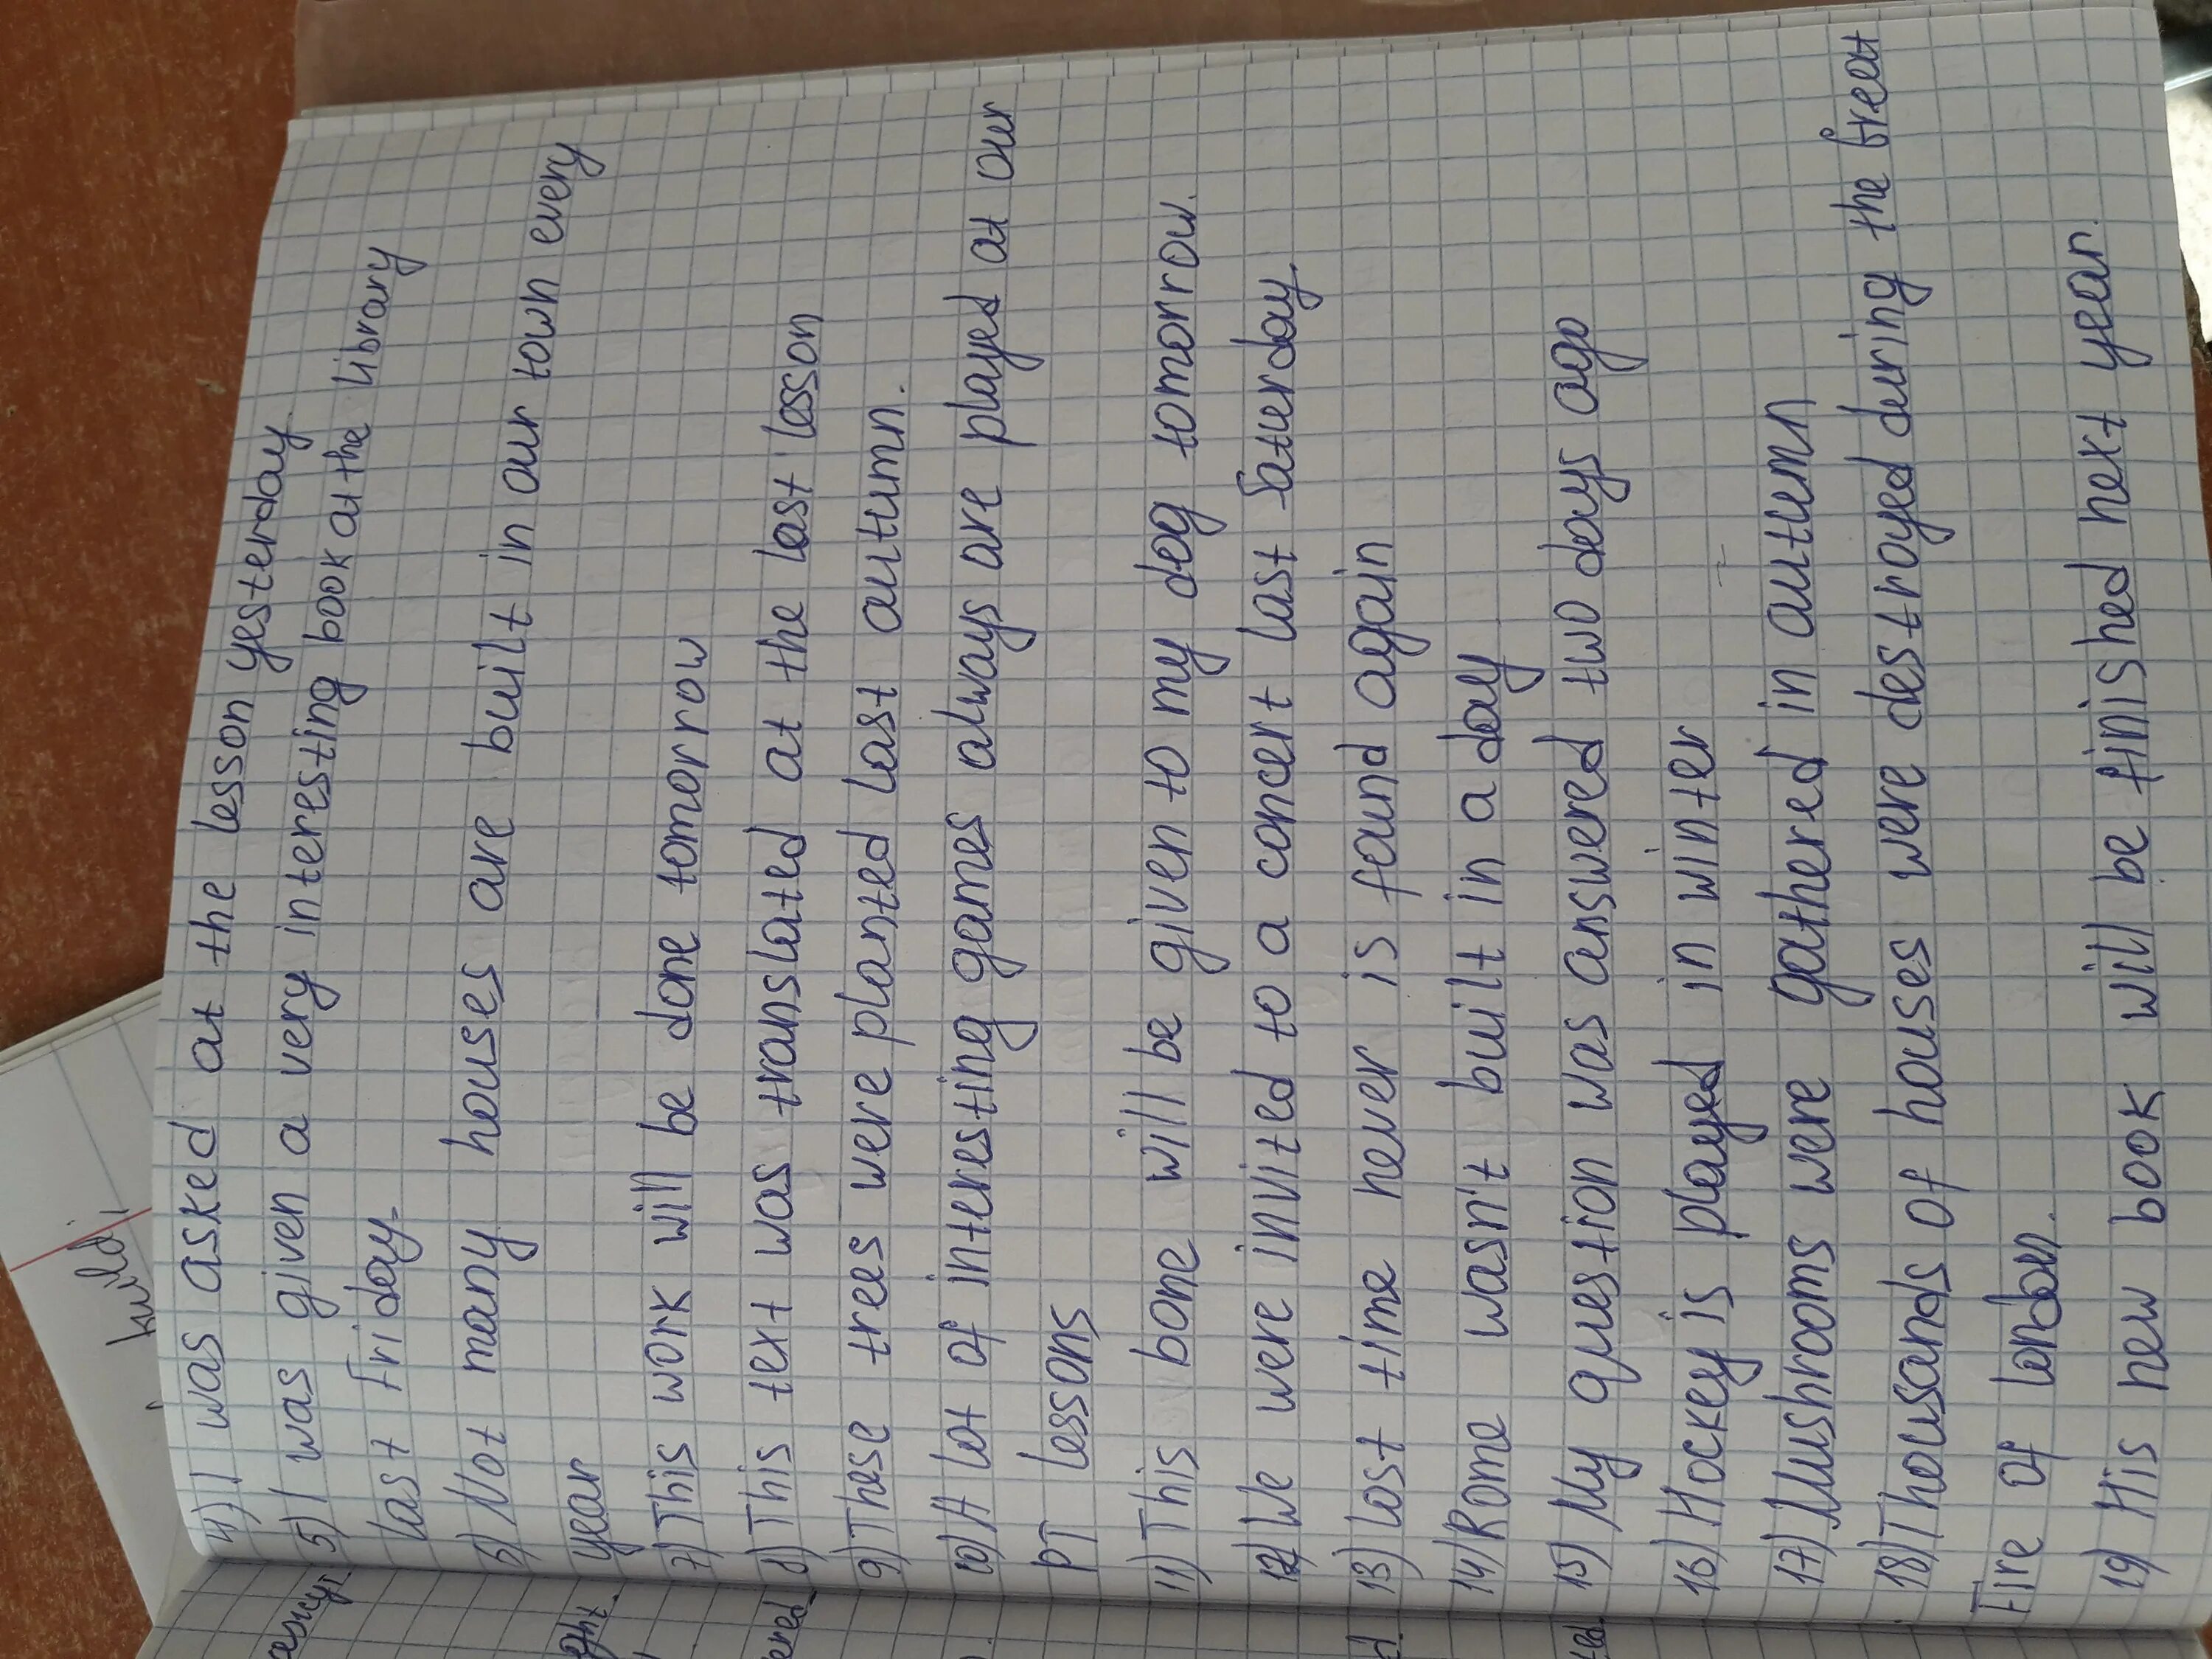 kuldi
4) I was asked at the lesson yesterday
5) I was given a very interesting book at the library
last Friday.
6) Not many houses are built in our town every
year
7) This work will be done tomorrow
8) This text was translated at the last lesson
9) These trees were planted last autumn.
10) A lot of interesting games always are played at our
PT lessons
11) This bone will be given to my dog tomorrow.
12) We were invited to a concert last Saturday.
13) Lost time never is found again
14) Rome wasn't built in a day
15) My question was answered two days ago
16) Hockey is played in winter
17) Mushrooms were gathered in autumn
18) Thousands of houses were destroyed during the Great
Fire of London.
19) His new book will be finished next year.